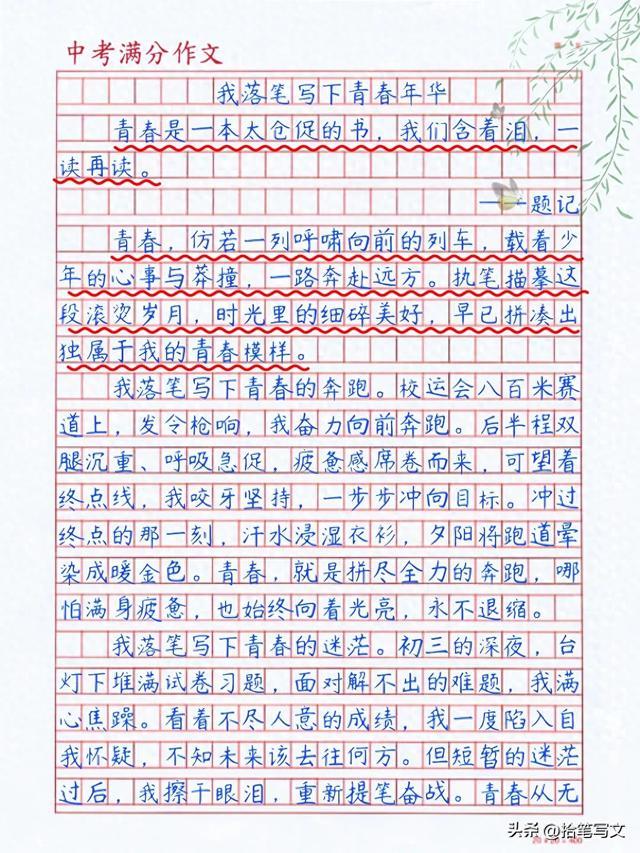 中考满分作文
我落笔写下青春年华
青春是一本太仓促的书，我们含着泪，一
读再读。
——题记
青春，仿若一列呼啸向前的列车，载着少
年的心事与莽撞，一路奔赴远方。执笔描摹这
段滚烫岁月，时光里的细碎美好，早已拼凑出
独属于我的青春模样。
我落笔写下青春的奔跑。校运会八百米赛
道上，发令枪响，我奋力向前奔跑。后半程双
腿沉重、呼吸急促，疲惫感席卷而来，可望着
终点线，我咬牙坚持，一步步冲向目标。冲过
终点的那一刻，汗水浸湿衣衫，夕阳将跑道晕
染成暖金色。青春，就是拼尽全力的奔跑，哪
怕满身疲惫，也始终向着光亮，永不退缩。
我落笔写下青春的迷茫。初三的深夜，台
灯下堆满试卷习题，面对解不出的难题，我满
心焦躁。看着不尽人意的成绩，我一度陷入自
我怀疑，不知未来该去往何方。但短暂的迷茫
过后，我擦干眼泪，重新提笔奋战。青春从无
头条 @拾笔写文